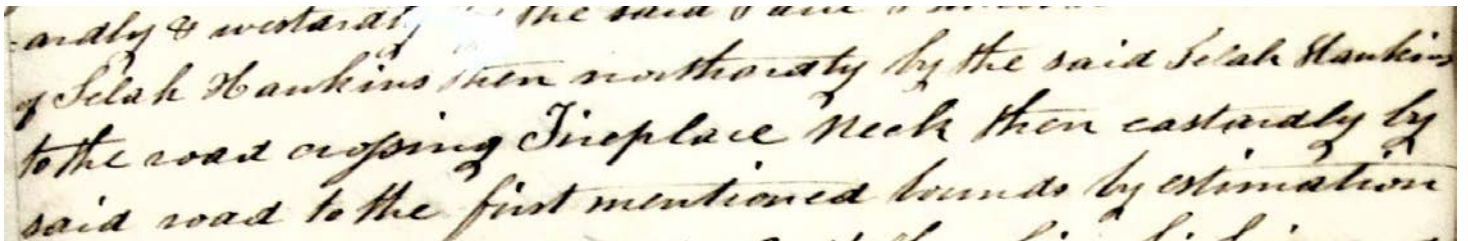 -ardly & westardly the said
of Selah Hawkins then northardly by the said Selah Hawkins
to the road crossing Fireplace Neck then eastardly by
said road to the first mentioned bounds by estimation